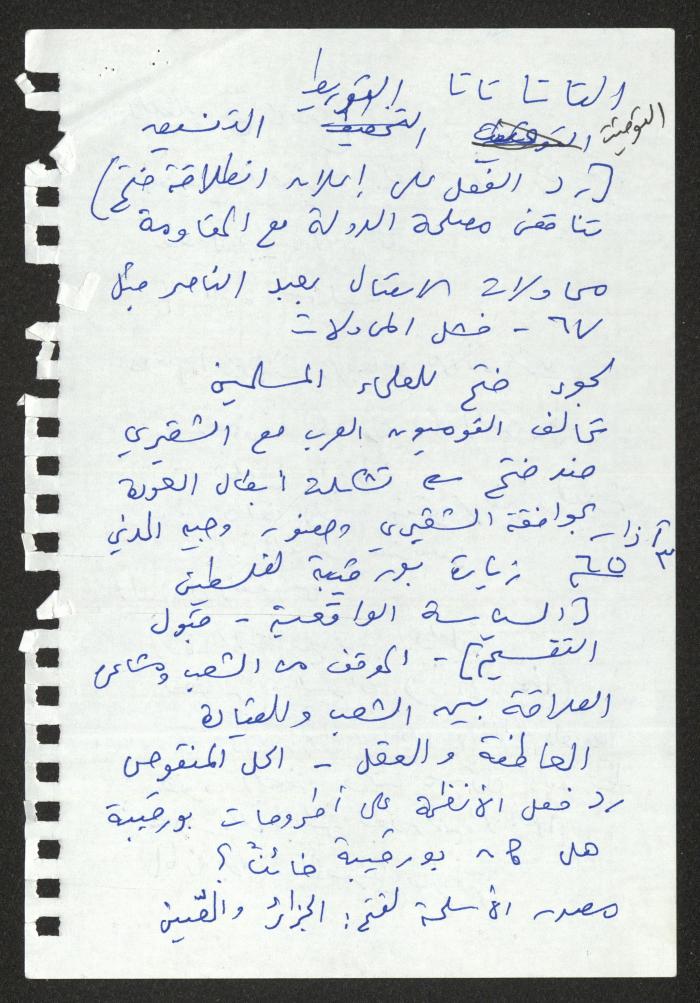 التاتا تاتا التوريط
التوقيت التحقيق التنسيق
[رد الفعل على إعلان انطلاقة فتح]
تناقض مصلحة الدولة مع المقاومة
محاولات الاتصال بعبد الناصر قبل
٦٧ - فشل المحاولات
لجوء فتح للعلماء المسلمين
تحالف القوميون العرب مع الشقيري
ضد فتح تشكيلة أبطال العودة
بموافقة الشقيري وجيه المدني
٣ آذار ٦٥ زيارة بورقيبة لفلسطين
[السياسة الواقعية - قبول
التقسيم] - الموقف من الشعب ومشاعره
العلاقة بين الشعب والقيادة
العاطفة والعقل - الحل المنقوص
رد فعل الأنظمة على أطروحات بورقيبة
هل كان بورقيبة خائناً؟
مصدر الأسلحة لفتح: الجزائر والصّين